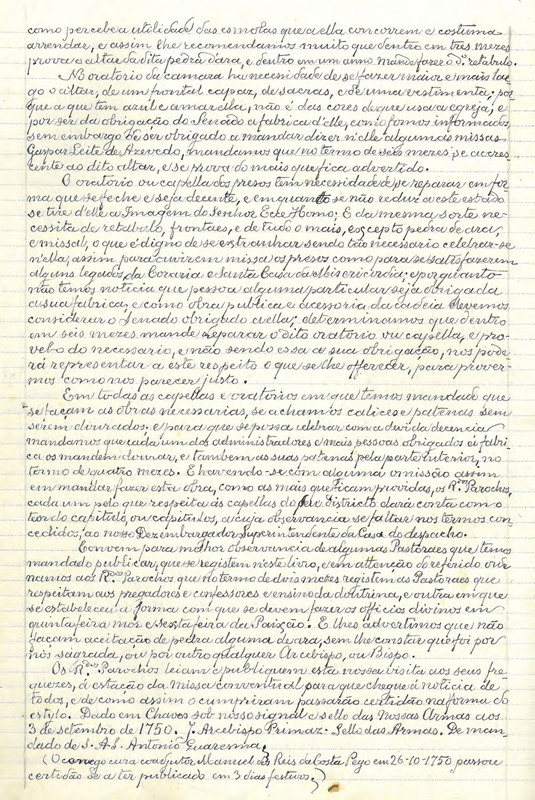 como percebe a utilidade das esmolas que a ella concorrem e costuma
arrendar, e assim lhe recomendamos muito que dentro em tres mezes
prova o altar da dita pedra d'ara, e dentro em um anno mande fazer o dº retabulo.
No oratorio da camara ha necesidade de se fazer maior e mais lar-
go o altar, de um frontal capaz, de sacras, e de uma vestimenta; por
que a que tem azul e amarella, não é das cores de que usa a egreja; e
por ser da obrigação do Senado a fabrica d'elle, como fomos informados,
sem embargo de ser obrigado a mandar dizer n'elle algumas missas
Gaspar Leite de Azevedo, mandamos que no termo de seis mezes se acores
cente ao dito altar, e se prova do mais que fica advertido.
O oratorio ou capella dos presos tem necesidade de se reparar em for-
ma que se feche e seja decente, e emquanto se não reduz a este estado
se tire d'elle a Imagem do Senhor Ecce Homo; E da mesma sorte ne-
cessita de retabulo, frontaes, e de tudo o mais, excepto pedra de ara,
e missal, o que é digno de se extranhar sendo tão necessario celebrar-se
n'ella, assim para ouvirem missa os presos como para se satisfazerem
alguns legados da Coraria e Santa Casa da Misericordia; e porquanto
não temos noticia que pessoa alguma particular seja obrigada
a sua fabrica, e como obra publica e acessoria da cadeia devemos
considerar o Senado obrigado a ella; determinamos que dentro
em seis mezes mande reparar o dito oratorio ou capella, e pro-
vel-o do necessario, e não sendo essa a sua obrigação, nos pode-
rá representar a este respeito o que se lhe offerecer, para prover-
mos como nos parecer justo.
Em todas as capellas e oratorios em que temos mandade que
se façam as obras necessarias, se acham calices e patenas sem
serem dourados; e para que se possa celebrar com a devida decencia
mandamos que cada um dos administradores e mais pessoas obrigados á fabri-
ca os mandem dourar, e tambem as suas patenas pela parte interior, no
termo de quatro mezes. E havendo-se com alguma omissão assim
em mandar fazer esta obra, como as mais que ficam providas, os R.dos Parochos,
cada um pelo que respeita ás capellas do seu districto dará conta com o
teor do capitulo, ou capitulos, a cuja observancia se faltar nos termos con-
cedidos, ao nosso Dezembargador Superintendente da Casa do despacho.
Convem para melhor observancia de algumas Pastoraes que temos
mandado publicar, que se registem neste livro, e em attenção do referido orde-
namos aos R.dos Parochos que no termo de dois mezes registem as Pastoraes que
respeitam aos pregadores e confessores e ensino da doutrina, e outra em que
se estabeleceu a forma com que se devem fazer os officios divinos em
quinta feira mór e sexta feira da Paixão. E lhes advertimos que não
façam aceitação de pedra alguma de ara, sem lhe constar que foi por
nós sagrada, ou por outro qualquer Arcebispo, ou Bispo.
Os R.dos Parochos leiam e publiquem esta nossa visita aos seus fre-
guezes, á estação da Missa conventual para que chegue á noticia de
todos, e de como assim o cumpriram passarão certidão na forma do
estylo. Dado em Chaves sob nosso signal e sello das Nossas Armas aos
3 de setembro de 1750. J. Arcebispo Primaz. Sello das Armas. De man-
dado de S. A. S. Antonio Guaresma,
(O conego cura coadjutor Manuel dos Reis da Costa Pego em 26-10-1750 passou
certidão de a ter publicado em 3 dias festivos.)